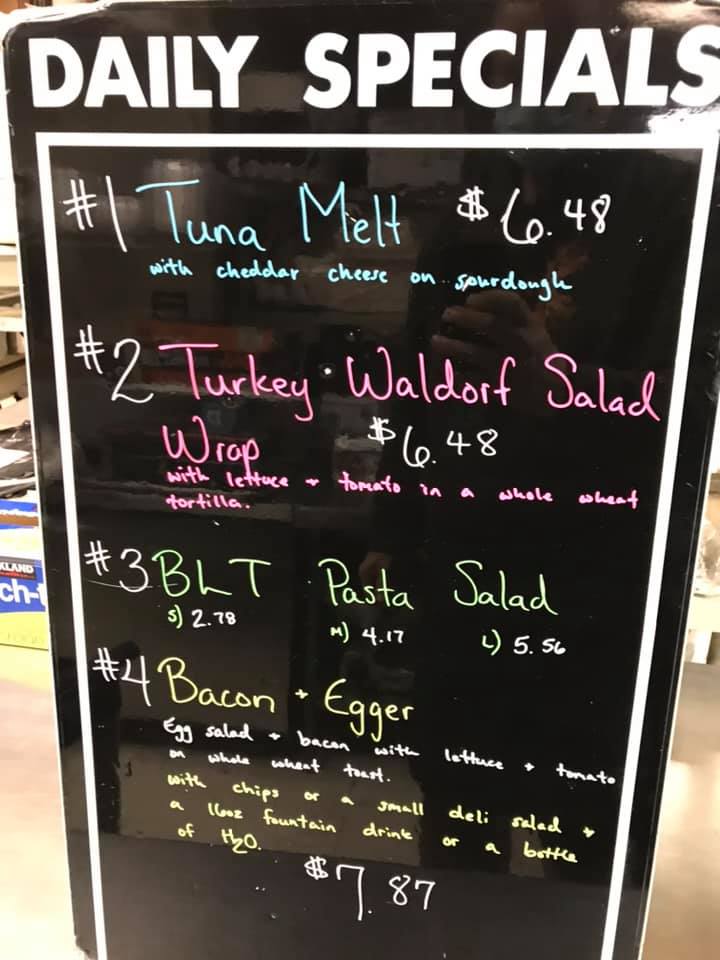 DAILY SPECIALS
#1 Tuna Melt $6.48
with cheddar cheese on sourdough
#2 Turkey Waldorf Salad
Wrap $6.48
with lettuce + tomato in a whole wheat
tortilla.
#3 BLT Pasta Salad
S) 2.78 M) 4.17 L) 5.56
#4 Bacon + Egger
Egg salad + bacon with lettuce + tomato
on whole wheat toast.
with chips or a small deli salad +
a 16oz fountain drink or a bottle
of H2O.
$7.87
KLAND
ch-